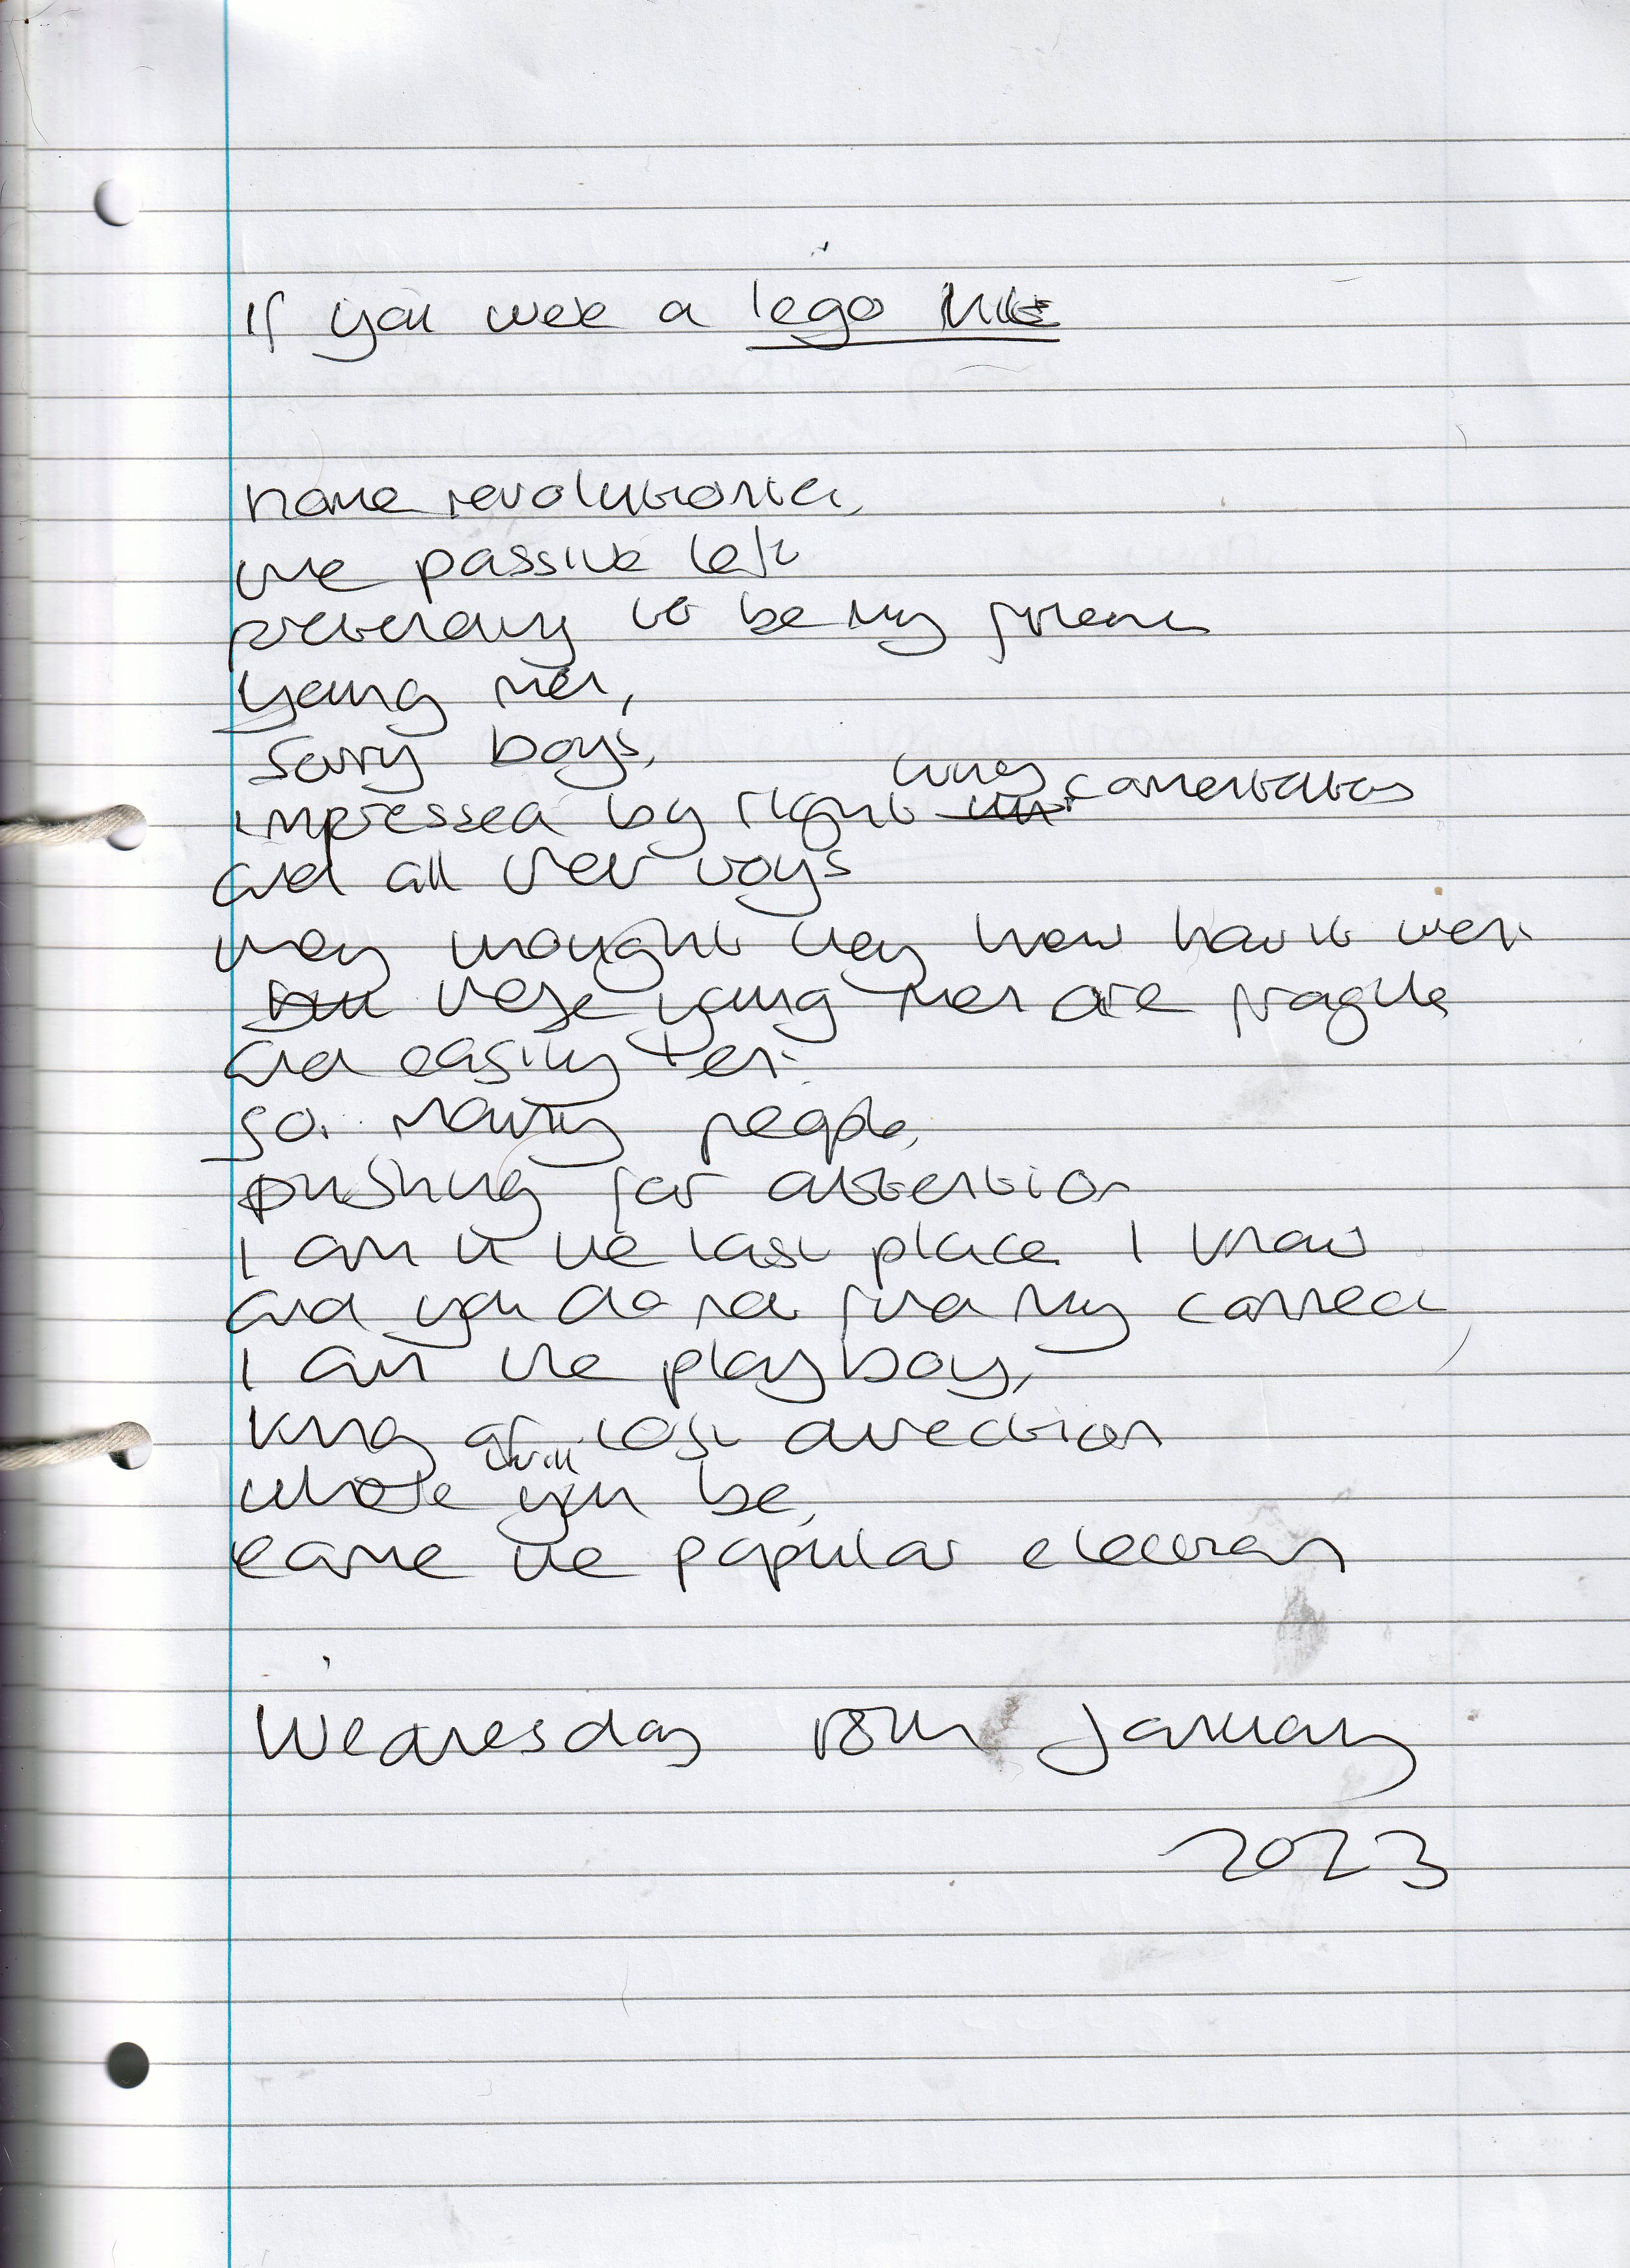 If you were a lego
home revolutionaries,
the passive left
pretending to be my friends
young men,
sorry boys,
impressed by right wing commentators
and all their toys
they thought they knew how it went
but these young men are fragile
and easily
so many people,
pushing for attention
I am in the last place I know
and you do not find my
I am the playboy,
king of lost direction
whose will you be,
come the popular election
Wednesday 18th January
2023